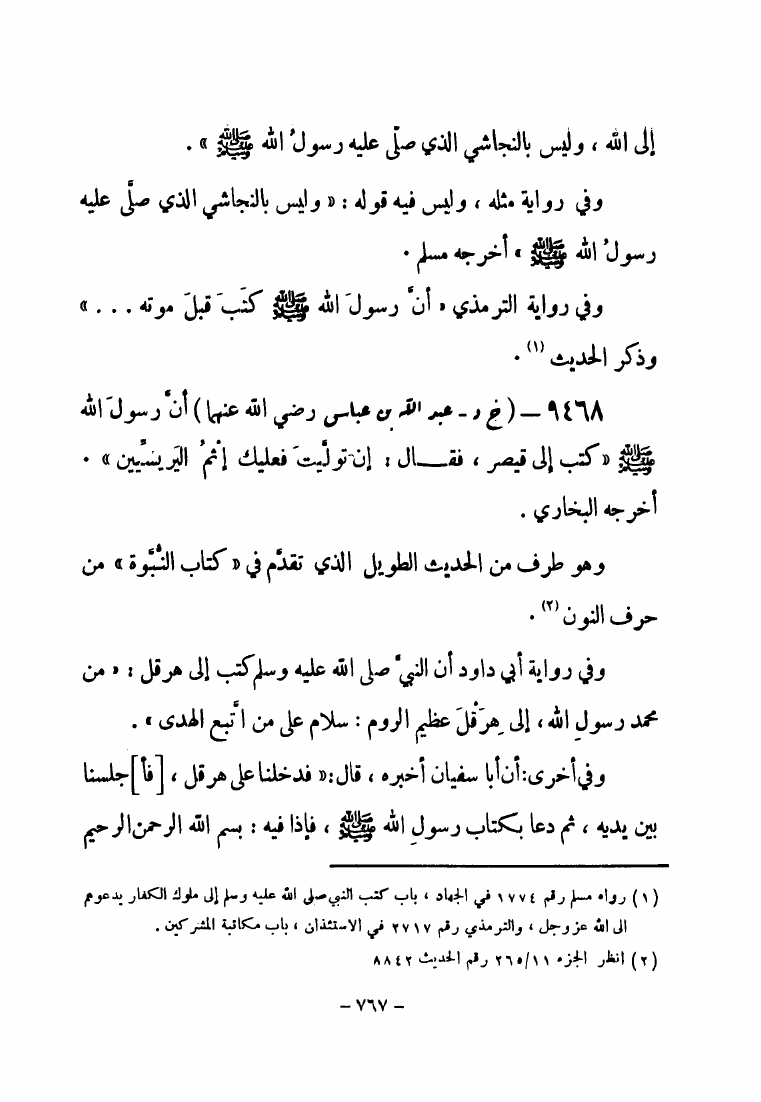 إلى الله ، وليس بالنجاشي الذي صلَّى عليه رسولُ الله ﷺ » .
وفي رواية مثله ، وليس فيه قوله : « وليس بالنجاشي الذي صلَّى عليه
رسولُ الله ﷺ » أخرجه مسلم .
وفي رواية الترمذي « أنَّ رسولَ الله ﷺ كتَبَ قبلَ موته . . . »
وذكر الحديث (١) .
٩٤٦٨ – ( خ د - عبد الله بن عباس رضي الله عنهما ) أنَّ رسولَ الله
ﷺ « كتب إلى قيصر ، فقـــال : إن تولَّيتَ فعليك إثمُ اليَريسيِّين » .
أخرجه البخاري .
وهو طرف من الحديث الطويل الذي تقدَّم في « كتاب النُّبوَّة » من
حرف النون (٢) .
وفي رواية أبي داود أن النبيَّ صلى الله عليه وسلم كتب إلى هرقل : « من
محمد رسولِ الله ، إلى هِرَقْلَ عظيم الروم : سلام على من اتَّبع الهدى » .
وفي أخرى : أن أبا سفيان أخبره ، قال : « فدخلنا على هرقل ، [ فأ ] جلسنا
بين يديه ، ثم دعا بكتاب رسولِ الله ﷺ ، فإذا فيه : بسم الله الرحمن الرحيم
(١) رواه مسلم رقم ١٧٧٤ في الجهاد ، باب كتب النبي صلى الله عليه وسلم إلى ملوك الكفار يدعوهم
الى الله عز وجل ، والترمذي رقم ٢٧١٧ في الاستئذان ، باب مكاتبة المشركين .
(٢) انظر الجزء ٢٦٥/١١ رقم الحديث ٨٨٤٢
– ٧٦٧ –